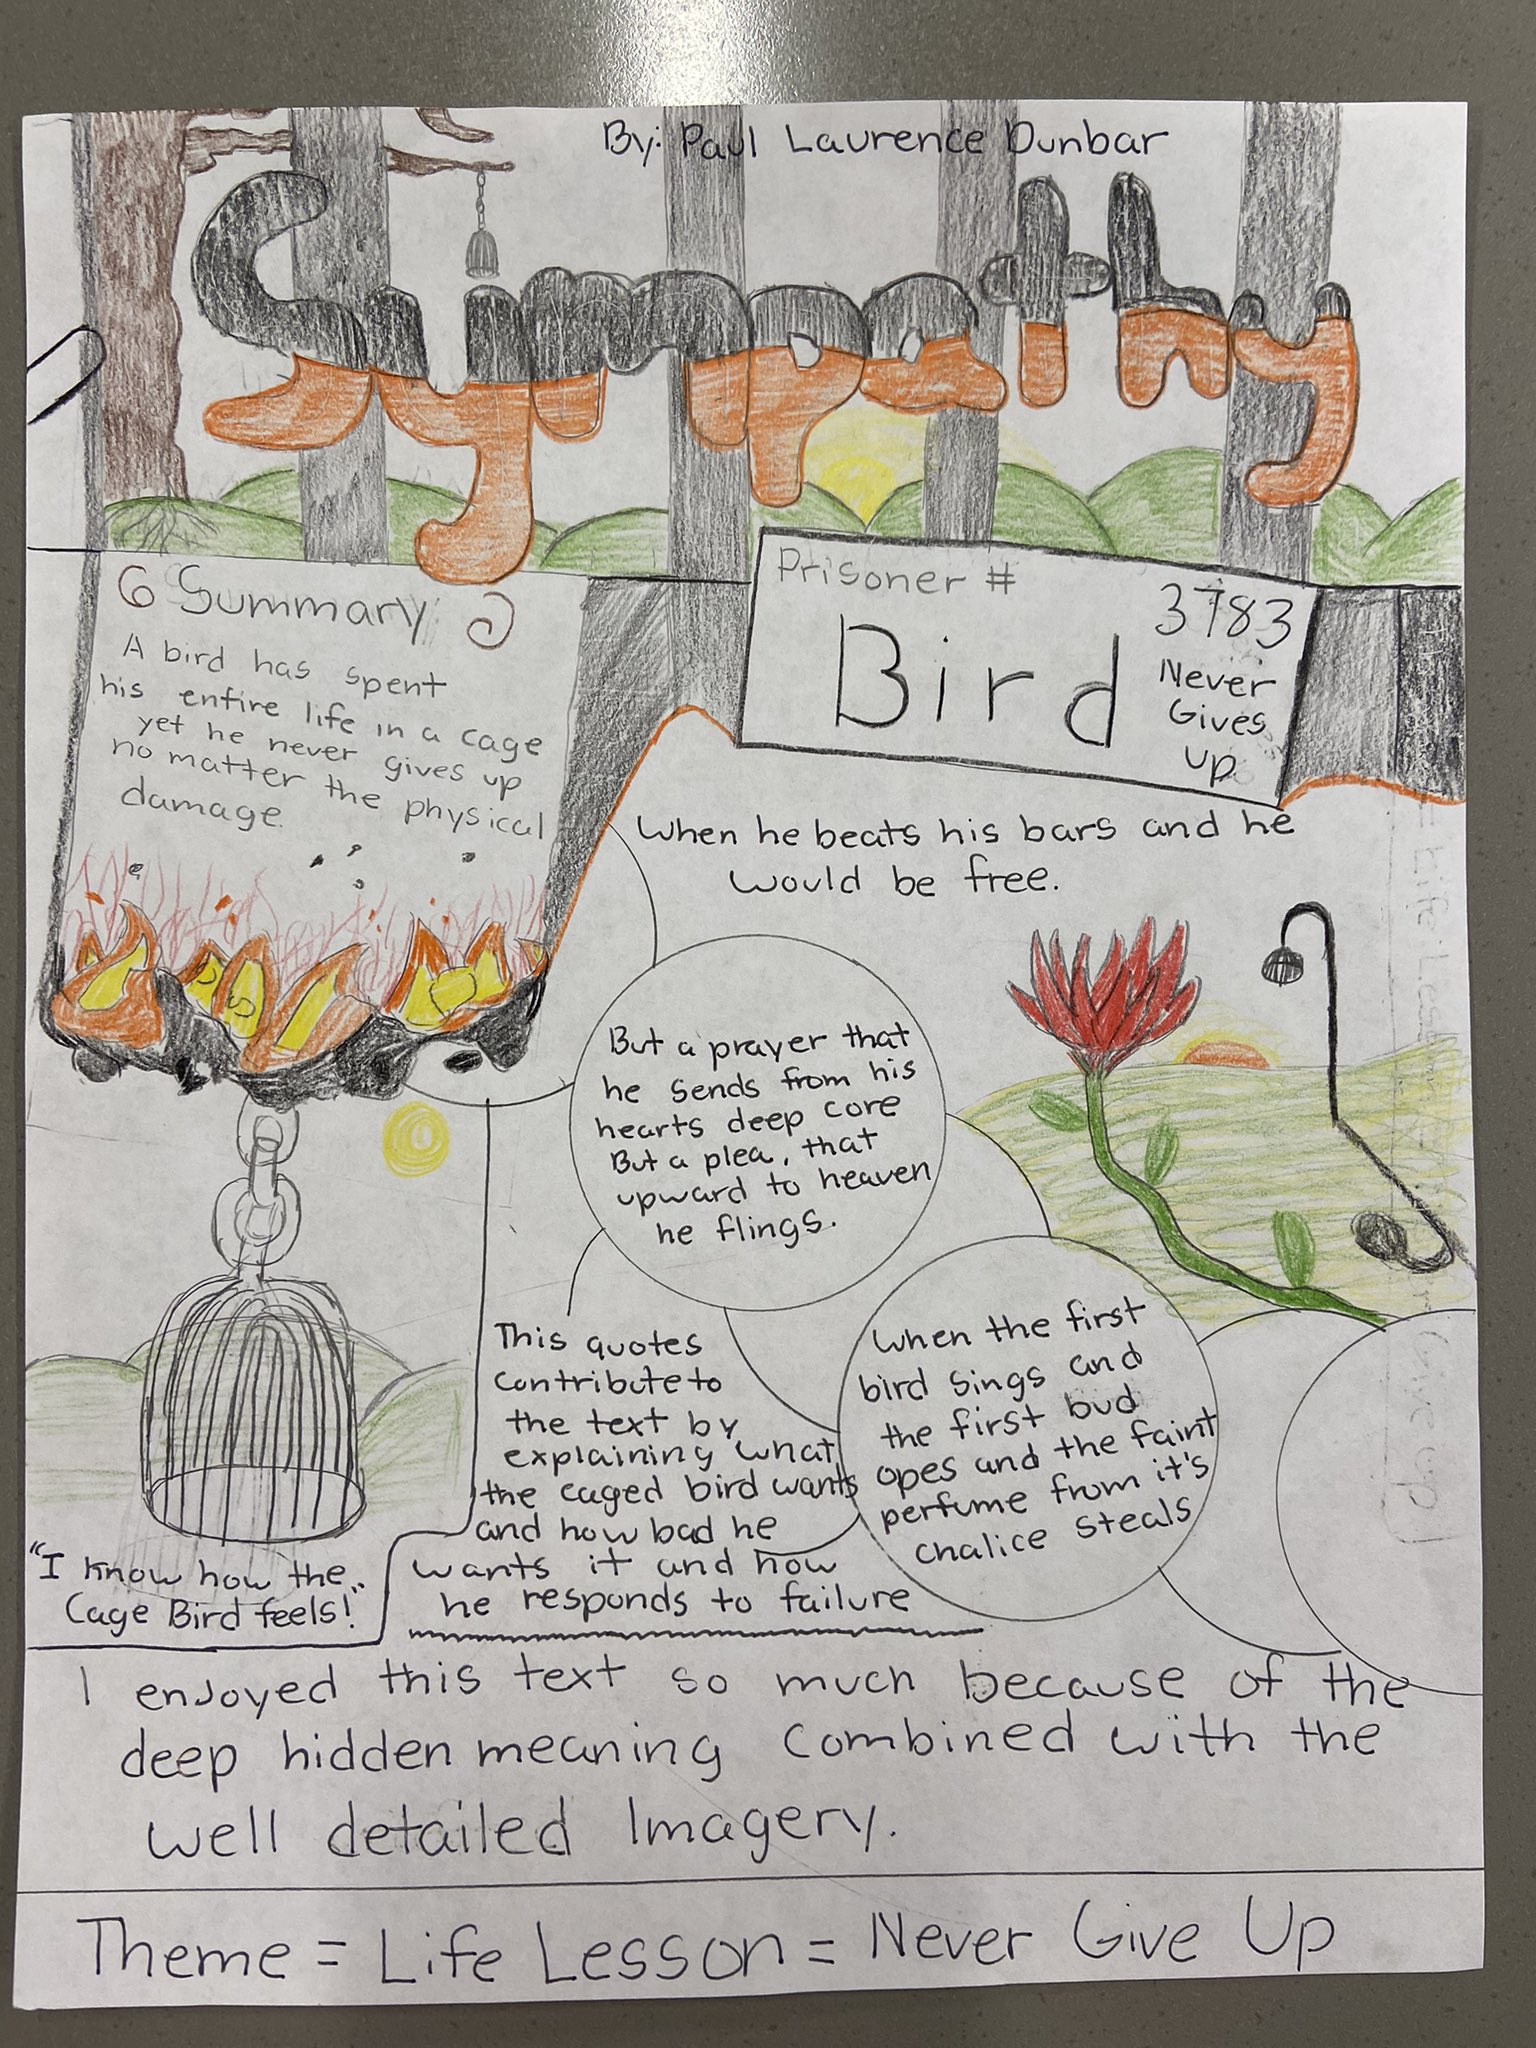 By: Paul Laurence Dunbar
Sympathy
Summary
A bird has spent
his entire life in a cage
yet he never gives up
no matter the physical
damage.
Prisoner #
3783
Bird
Never
Gives
up
When he beats his bars and he
would be free.
But a prayer that
he sends from his
hearts deep core
But a plea, that
upward to heaven
he flings.
When the first
bird sings and
the first bud
opes and the faint
perfume from it's
chalice steals
This quotes
contribute to
the text by
explaining what
the caged bird wants
and how bad he
wants it and how
he responds to failure
"I know how the
Cage Bird feels!"
I enjoyed this text so much because of the
deep hidden meaning combined with the
well detailed Imagery.
Theme = Life Lesson = Never Give Up